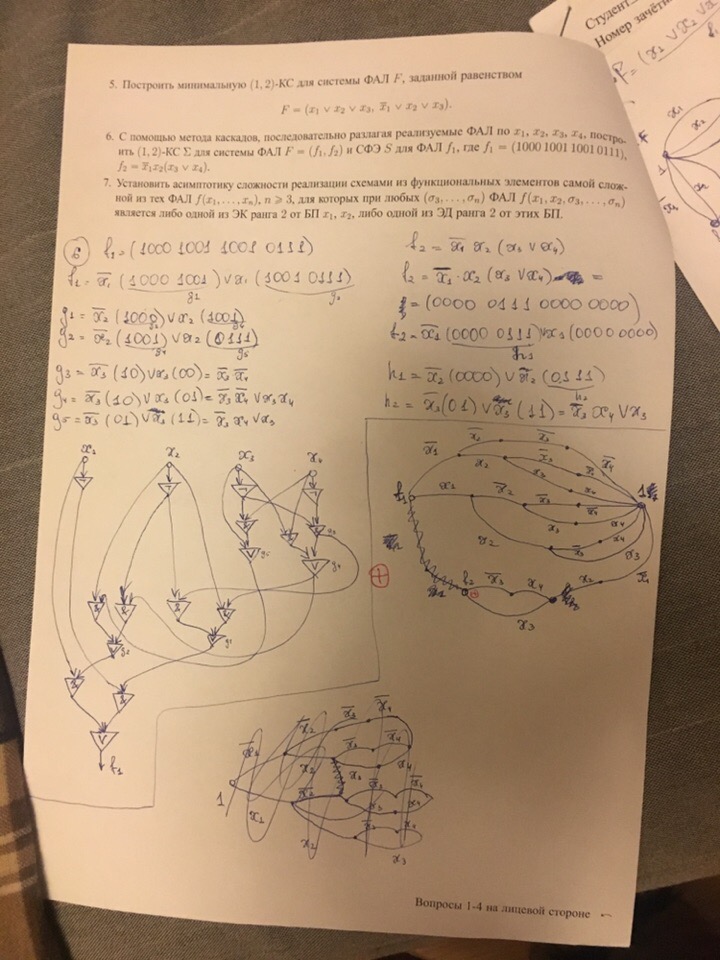 Студент
Номер зачётн
5. Построить минимальную (1, 2)-КС для системы ФАЛ F, заданной равенством
F = (x₁ ∨ x₂ ∨ x₃, x̄₁ ∨ x₂ ∨ x₃).
6. С помощью метода каскадов, последовательно разлагая реализуемые ФАЛ по x₁, x₂, x₃, x₄, постро-
ить (1, 2)-КС Σ для системы ФАЛ F = (f₁, f₂) и СФЭ S для ФАЛ f₁, где f₁ = (1000 1001 1001 0111),
f₂ = x̄₁x₂(x₃ ∨ x₄).
7. Установить асимптотику сложности реализации схемами из функциональных элементов самой слож-
ной из тех ФАЛ f(x₁, …, xₙ), n ⩾ 3, для которых при любых (σ₃, …, σₙ) ФАЛ f(x₁, x₂, σ₃, …, σₙ)
является либо одной из ЭК ранга 2 от БП x₁, x₂, либо одной из ЭД ранга 2 от этих БП.
6 f₁ = (1000 1001 1001 0111)
f₁ = x̄₁ (1000 1001) ∨ x₁ (1001 0111)
g₁ g₂
g₁ = x̄₂ (1000) ∨ x₂ (1001)
g₂ = x̄₂ (1001) ∨ x₂ (0111)
g₄ g₅
g₃ = x̄₃ (10) ∨ x₃ (00) = x̄₃ x̄₄
g₄ = x̄₃ (10) ∨ x₃ (01) = x̄₃ x̄₄ ∨ x₃ x₄
g₅ = x̄₃ (01) ∨ x₃ (11) = x̄₃ x₄ ∨ x₃
f₂ = x̄₁ x₂ (x₃ ∨ x₄)
f₂ = x̄₁ · x₂ (x₃ ∨ x₄) =
= (0000 0111 0000 0000)
f₂ = x̄₁ (0000 0111) ∨ x₁ (0000 0000)
h₁
h₁ = x̄₂ (0000) ∨ x₂ (0111)
h₂
h₂ = x̄₃ (01) ∨ x₃ (11) = x̄₃ x₄ ∨ x₃
x₁ x₂ x₃ x₄
g₅ g₄
g₂ g₁
f₁
x̄₁ x̄₂ x̄₃ x̄₄
x₂ x̄₃ x̄₄
x₃ x₄
f₁ x₁ x̄₂ x̄₃ x̄₄ 1
x₃ x₄
x₂ x̄₃ x₄
x₃
f₂ x̄₃ x₄ x₂ x̄₁
x₃
x̄₃ x̄₄
x̄₁ x̄₂ x̄₃ x̄₄
x₂ x₃ x₄
1 x̄₂ x̄₃ x̄₄
x₁ x₃ x₄
x₂ x̄₃ x₄
x₃
Вопросы 1-4 на лицевой стороне